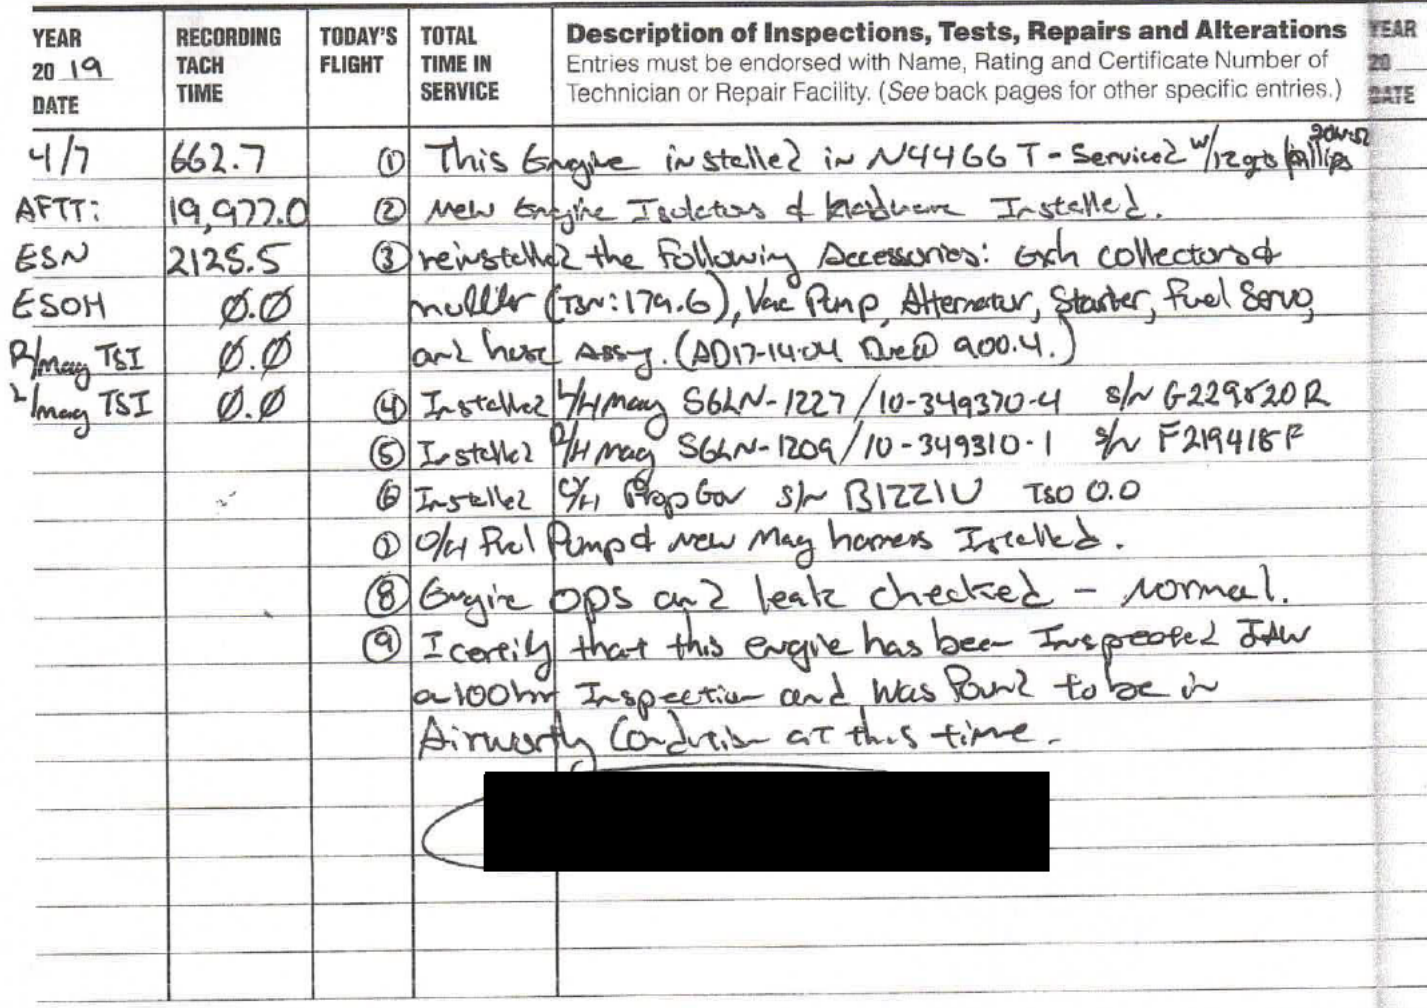 YEAR 20 19 DATE
RECORDING TACH TIME
TODAY'S FLIGHT
TOTAL TIME IN SERVICE
Description of Inspections, Tests, Repairs and Alterations
Entries must be endorsed with Name, Rating and Certificate Number of
Technician or Repair Facility. (See back pages for other specific entries.)
YEAR 20 DATE
4/7 662.7 ① This Engine installed in N4466T - Serviced w/12qts Phillips 20W-50
AFTT: 19,977.0 ② New Engine Isolators & Hardware Installed.
ESN 2125.5 ③ reinstalled the Following Accessories: Exh collectors &
ESOH 0.0 muffler (TSN: 179.6), Vac Pump, Alternator, Starter, Fuel Servo,
R/mag TSI 0.0 and hose Assy. (AD17-14-04 Due@ 900.4.)
L/mag TSI 0.0 ④ Installed L/H Mag S6LN-1227/10-349370-4 s/n G229820R
⑤ Installed R/H Mag S6LN-1209/10-349310-1 s/n F219418F
⑥ Installed O/H Prop Gov s/n B1221U TSO 0.0
⑦ O/H Fuel Pump & New Mag harness Installed.
⑧ Engine ops and leak checked - normal.
⑨ I certify that this engine has been Inspected IAW
a 100hr Inspection and was Found to be in
Airworthy Condition at this time.